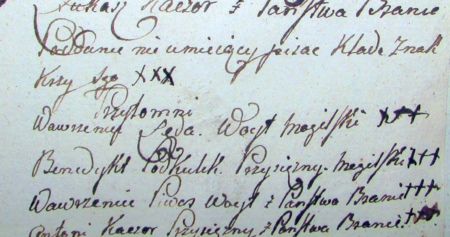 Łukasz Kaczor z Państwa Branic
Poddani nie umieiący pisac Kładą Znak
Krzyszgo xxx
Przytomni
Wawrzeniec Woyt Mogilski +++
Benedykt Podkulek. Przysięzny Mogilski +++
Wawrzeniec Woyt z Państwa Branic +++
Antoni Kaczor Przysięzny z Państwa Branic. +++